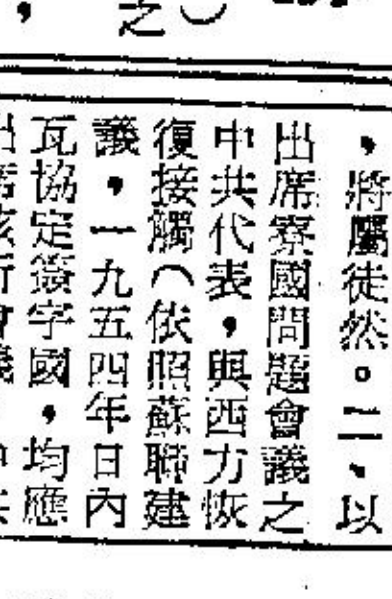 ，將屬徒然。二、以
出席寮國問題會議之
中共代表，與西方恢
復接觸（依照蘇聯建
議，一九五四年日內
瓦協定簽字國，均應